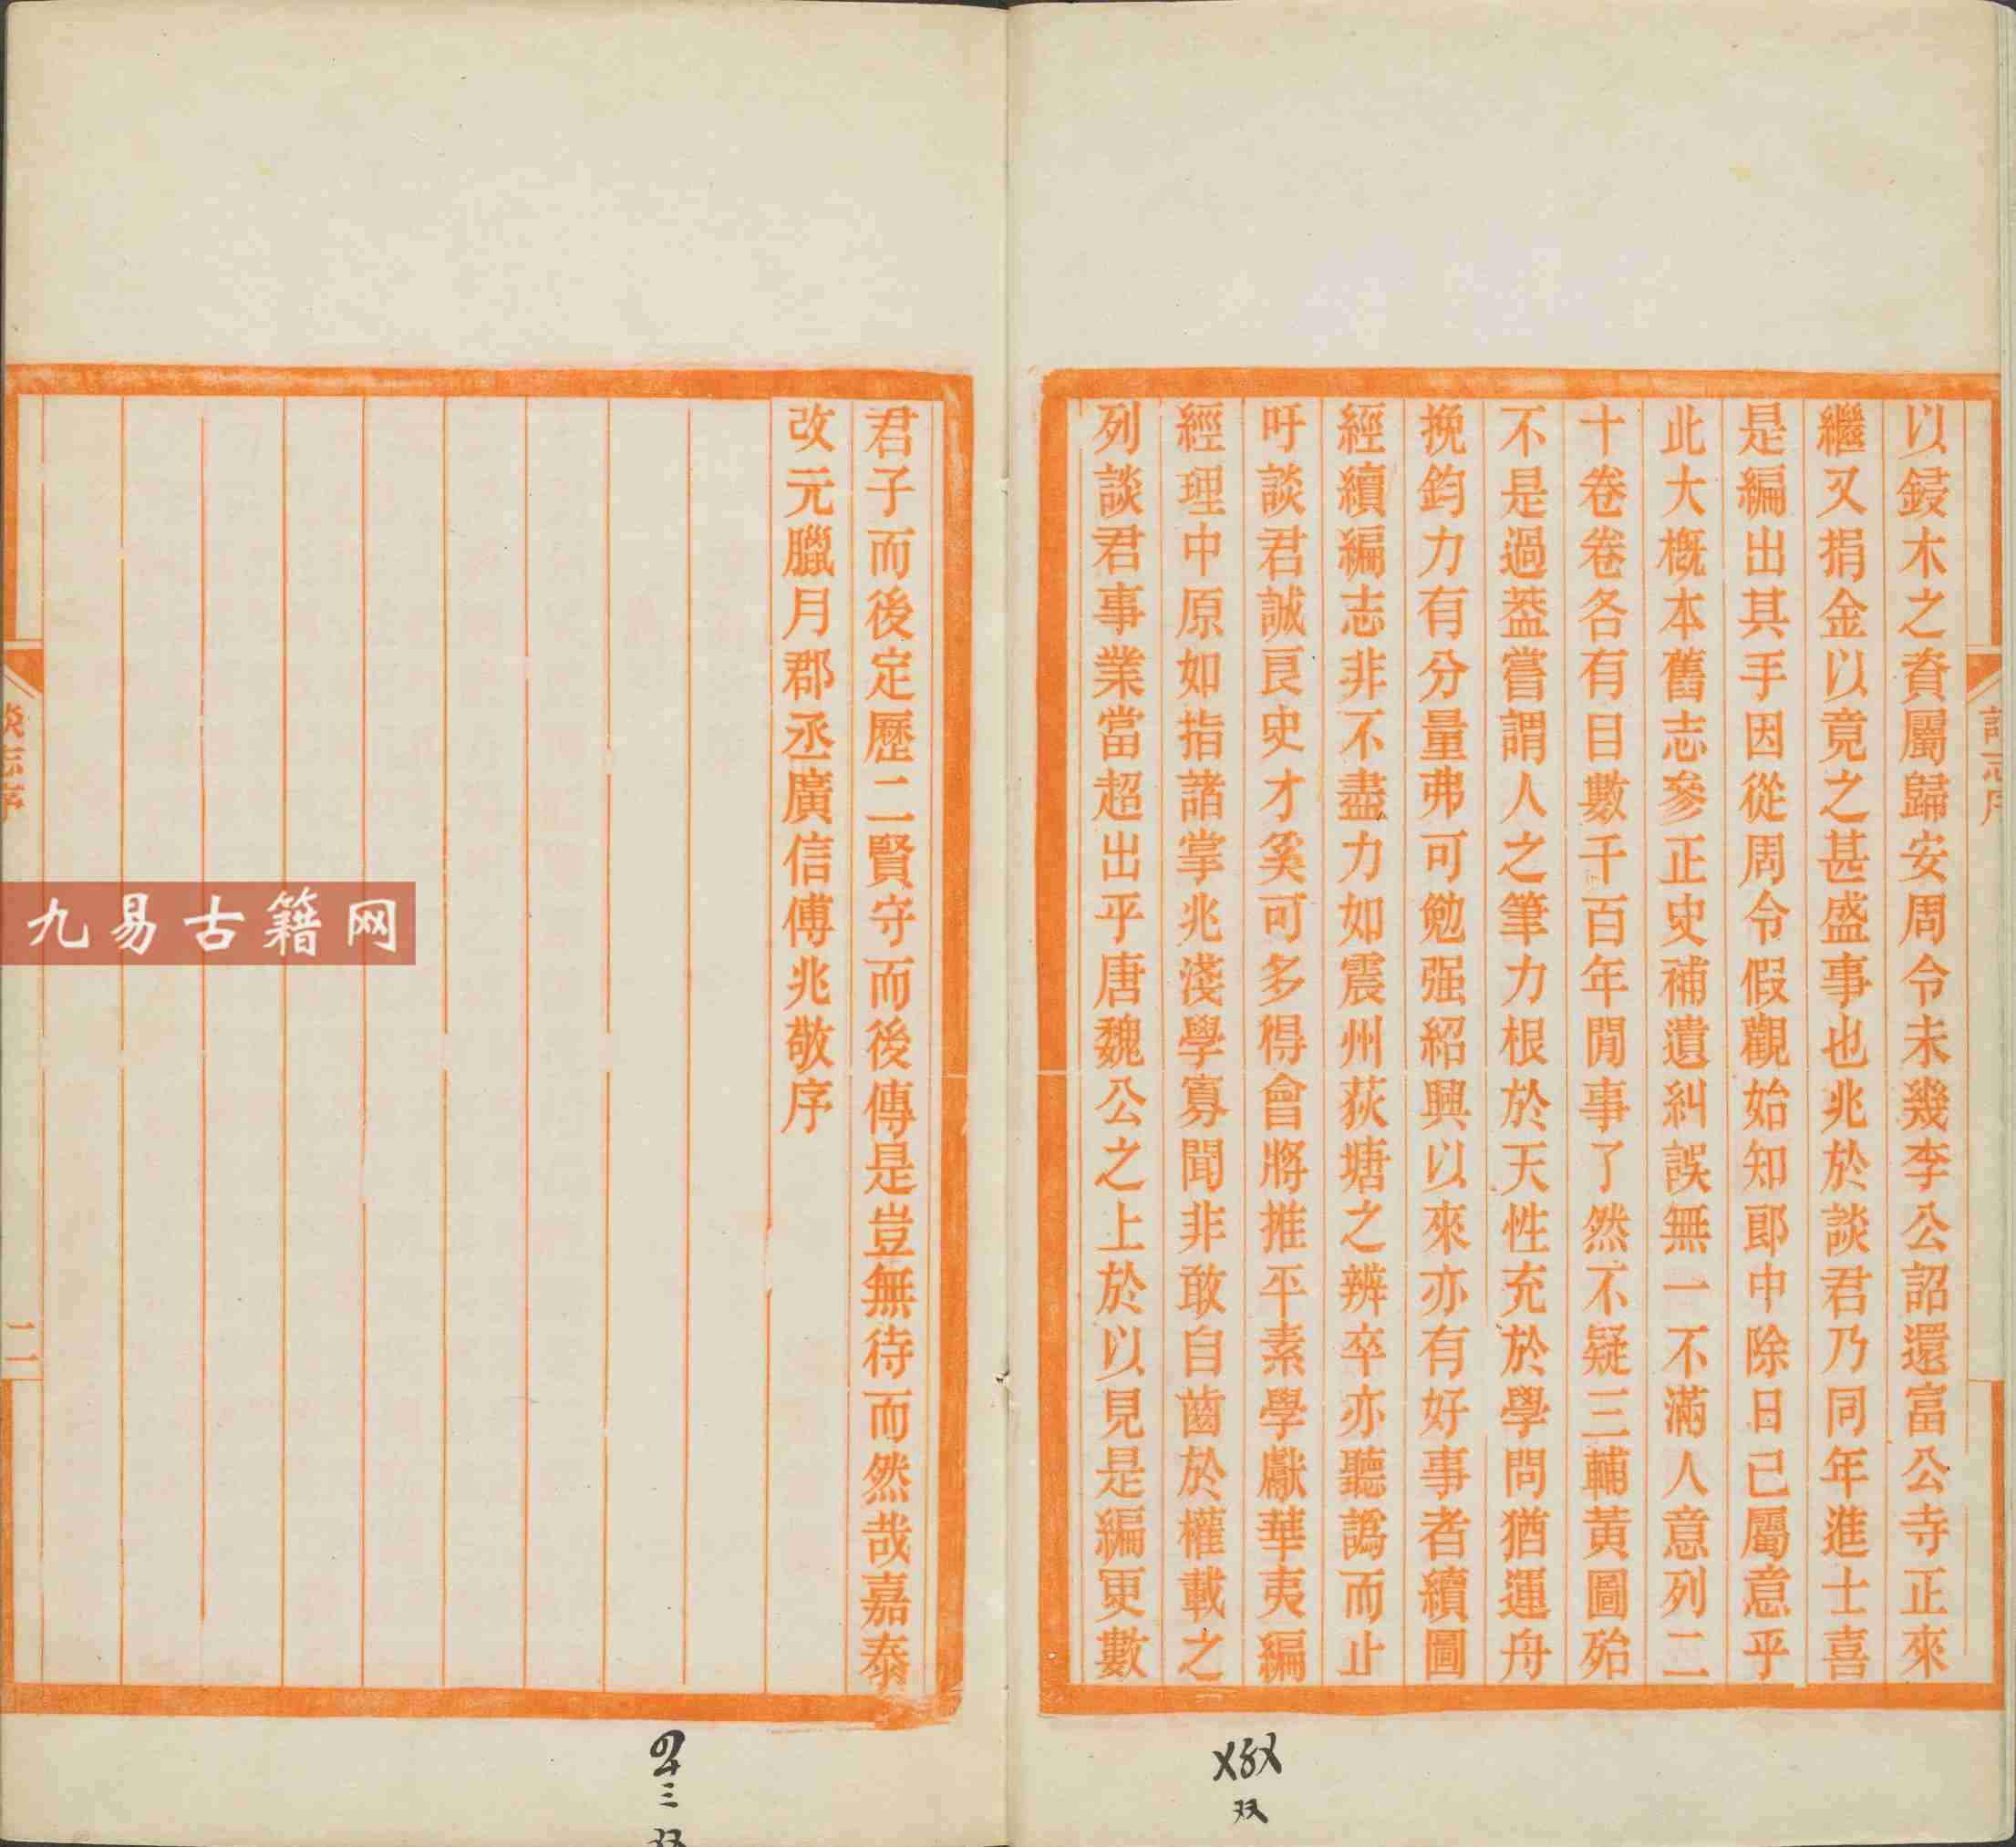 以鋟木之資屬歸安周令未幾李公詔還富公寺正來
繼又捐金以竟之甚盛事也兆於談君乃同年進士喜
是編出其手因從周令假觀始知郎中除日已屬意乎
此大槪本舊志參正史補遺糾誤無一不滿人意列二
十卷卷各有目數千百年閒事了然不疑三輔黃圖殆
不是過葢嘗謂人之筆力根於天性充於學問猶運舟
挽鈞力有分量弗可勉强紹興以來亦有好事者續圖
經續編志非不盡力如震州荻塘之辨卒亦聽譌而止
吁談君誠良史才奚可多得會將推平素學獻華夷編
經理中原如指諸掌兆淺學寡聞非敢自齒於權載之
列談君事業當超出乎唐魏公之上於以見是編更數
君子而後定歷二賢守而後傳是豈無待而然哉嘉泰
改元臘月郡丞廣信傅兆敬序
談志序
二
九易古籍网
三
双
双